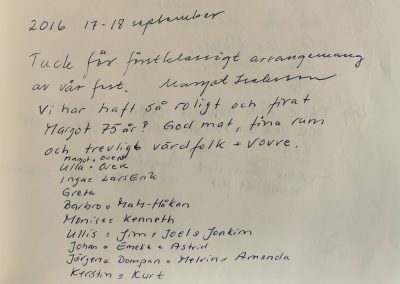 2016 17-18 september
Tack för förstklassigt arrangemang
av vår fest. Margot Isaksson
Vi har haft så roligt och firat
Margot 75 år! God mat, fina rum
och trevligt värdfolk + Vovve.
Margot
Ulla
Inga LarsErik
Greta
Barbro Mats-Håkan
Monica Kenneth
Ullis Jim Joel Joakim
Johan Emelie Astrid
Jörgen Dompan Melvin Amanda
Kerstin Kurt